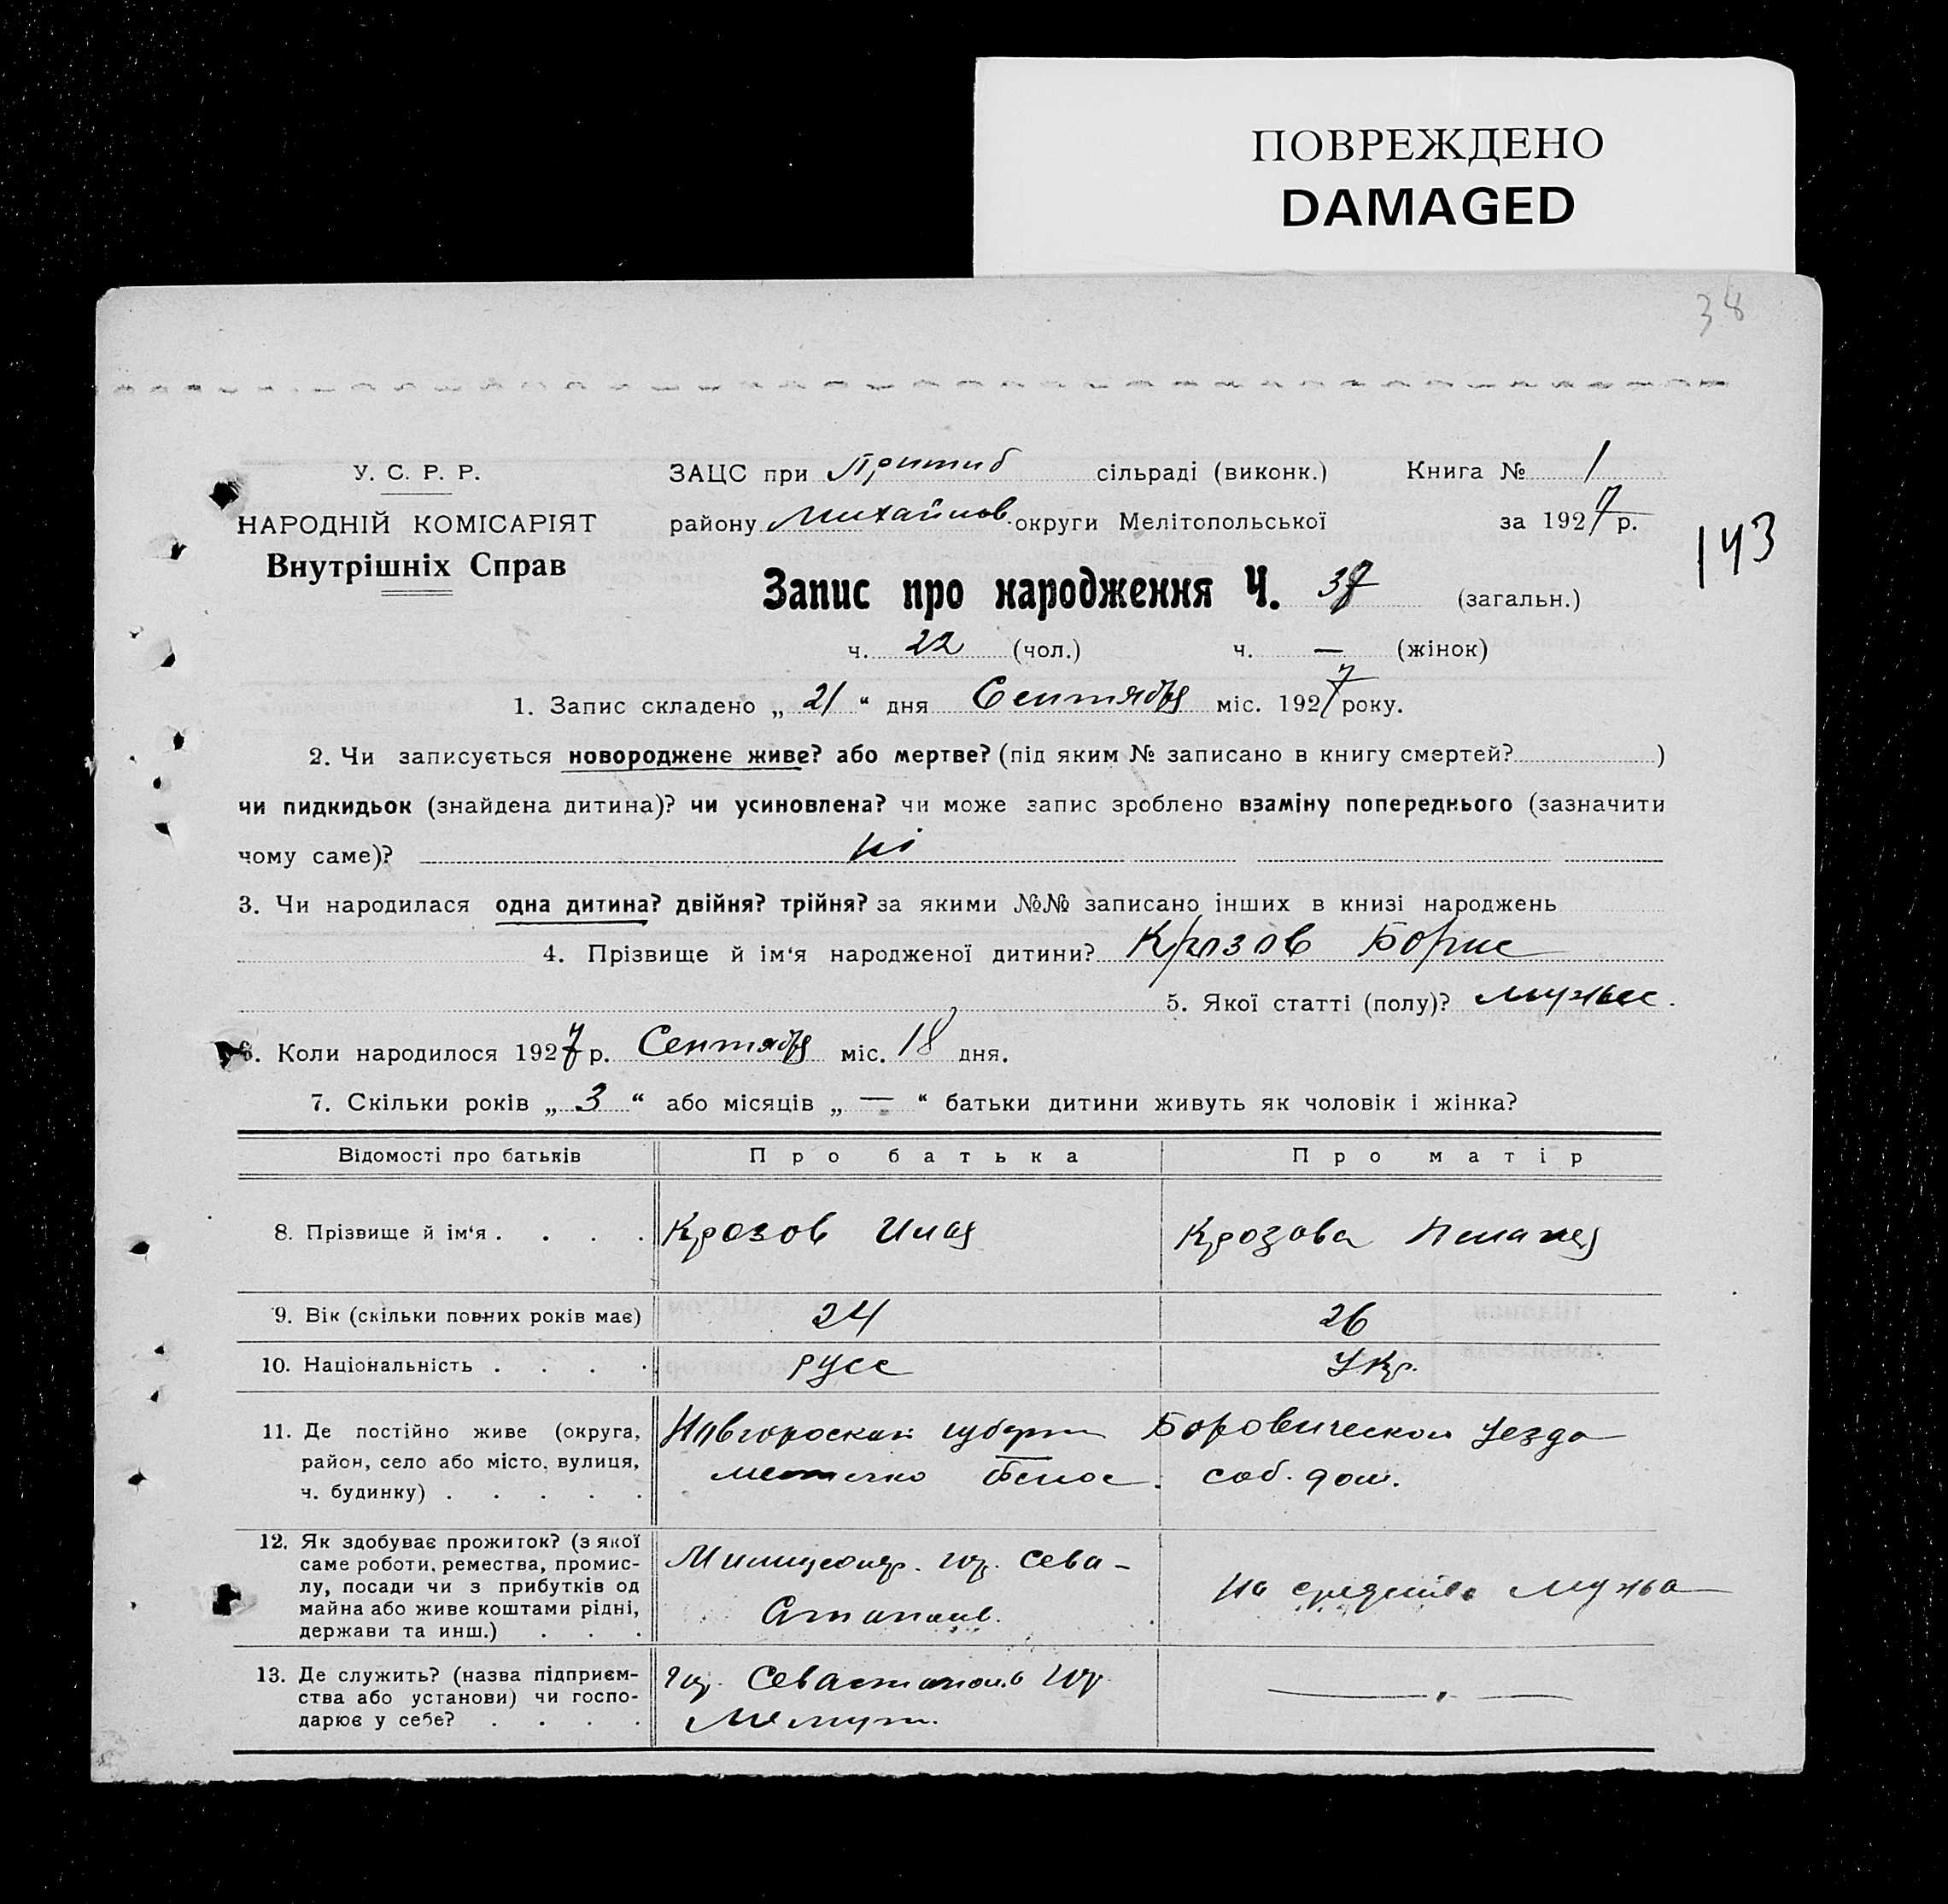 ПОВРЕЖДЕНО
DAMAGED
38
У. С. Р. Р.
НАРОДНІЙ КОМІСАРІЯТ
Внутрішніх Справ
ЗАЦС при Пришиб сільраді (виконк.) Книга № 1
району Михайлов. округи Мелітопольської за 1927 р.
143
Запис про народження Ч. 37 (загальн.)
ч. 22 (чол.) ч. — (жінок)
1. Запис складено „ 21 “ дня Сентября міс. 1927 року.
2. Чи записується новороджене живе? або мертве? (під яким № записано в книгу смертей? )
чи пидкидьок (знайдена дитина)? чи усиновлена? чи може запис зроблено взаміну попереднього (зазначити
чому саме)? ні
3. Чи народилася одна дитина? двійня? трійня? за якими №№ записано інших в книзі народжень
4. Прізвище й ім‘я народженої дитини? Крозов Борис
5. Якої статті (полу)?
6. Коли народилося 1927 р. Сентября міс. 18 дня.
7. Скільки років „ 3 “ або місяців „ — “ батьки дитини живуть як чоловік і жінка?
Відомості про батьків Про батька Про матір
8. Прізвище й ім‘я . . . . Крозов Илья Крозова
9. Вік (скільки повних років має) 24 26
10. Національність . . . . Русс Укр.
11. Де постійно живе (округа, район, село або місто, вулиця, ч. будинку) . . . . .
Боровической Уезда
местечко соб. дом.
12. Як здобуває прожиток? (з якої саме роботи, ремества, промислу, посади чи з прибутків од майна або живе коштами рідні, держави та инш.) . . .
гор. Сева-
стополь. На средства мужа
13. Де служить? (назва підприємства або установи) чи господарює у себе? . . . .
гор. Севастополь